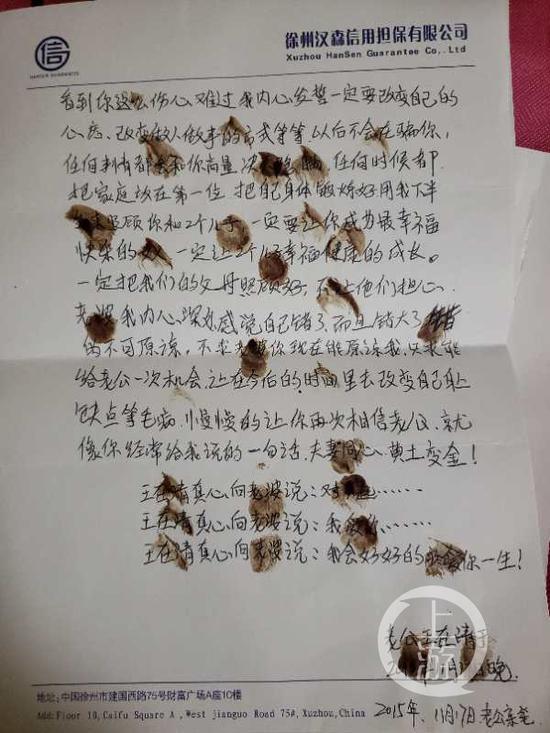 信
HANSEN GUARANTEE
徐州汉森信用担保有限公司
Xuzhou HanSen Guarantee Co,.Ltd
看到你这么伤心难过我内心发誓一定要改变自己的
心态、改变做人做事的方式等等，以后不会在骗你，
任何事情都会和你商量 任何时候都
把家庭放在第一位 把自己身体锻炼好用我下半
照顾你和2个儿子 一定要让你成为最幸福
快乐的女人 一定让2个儿子幸福健康的成长。
一定把我们的父母照顾好，不让他们担心
老婆我内心深处感觉自己错了而且错大了错
的不可原谅，不求老婆你现在能原谅我，只求能
给老公一次机会，让在今后的时间里去改变自己身上
缺点等毛病，慢慢的让你再次相信老公，就
像你经常给我说的一句话，夫妻同心、黄土变金！
王在清真心向老婆说：对不起……
王在清真心向老婆说：我爱你……
王在清真心向老婆说：我会好好的 你一生！
老公王在清于
晚
2015年、11月17日老公亲笔
上游
地址:中国徐州市建国西路75号财富广场A座10楼
Add:Floor 10,Caifu Square A ,West jianguo Road 75#,Xuzhou,China